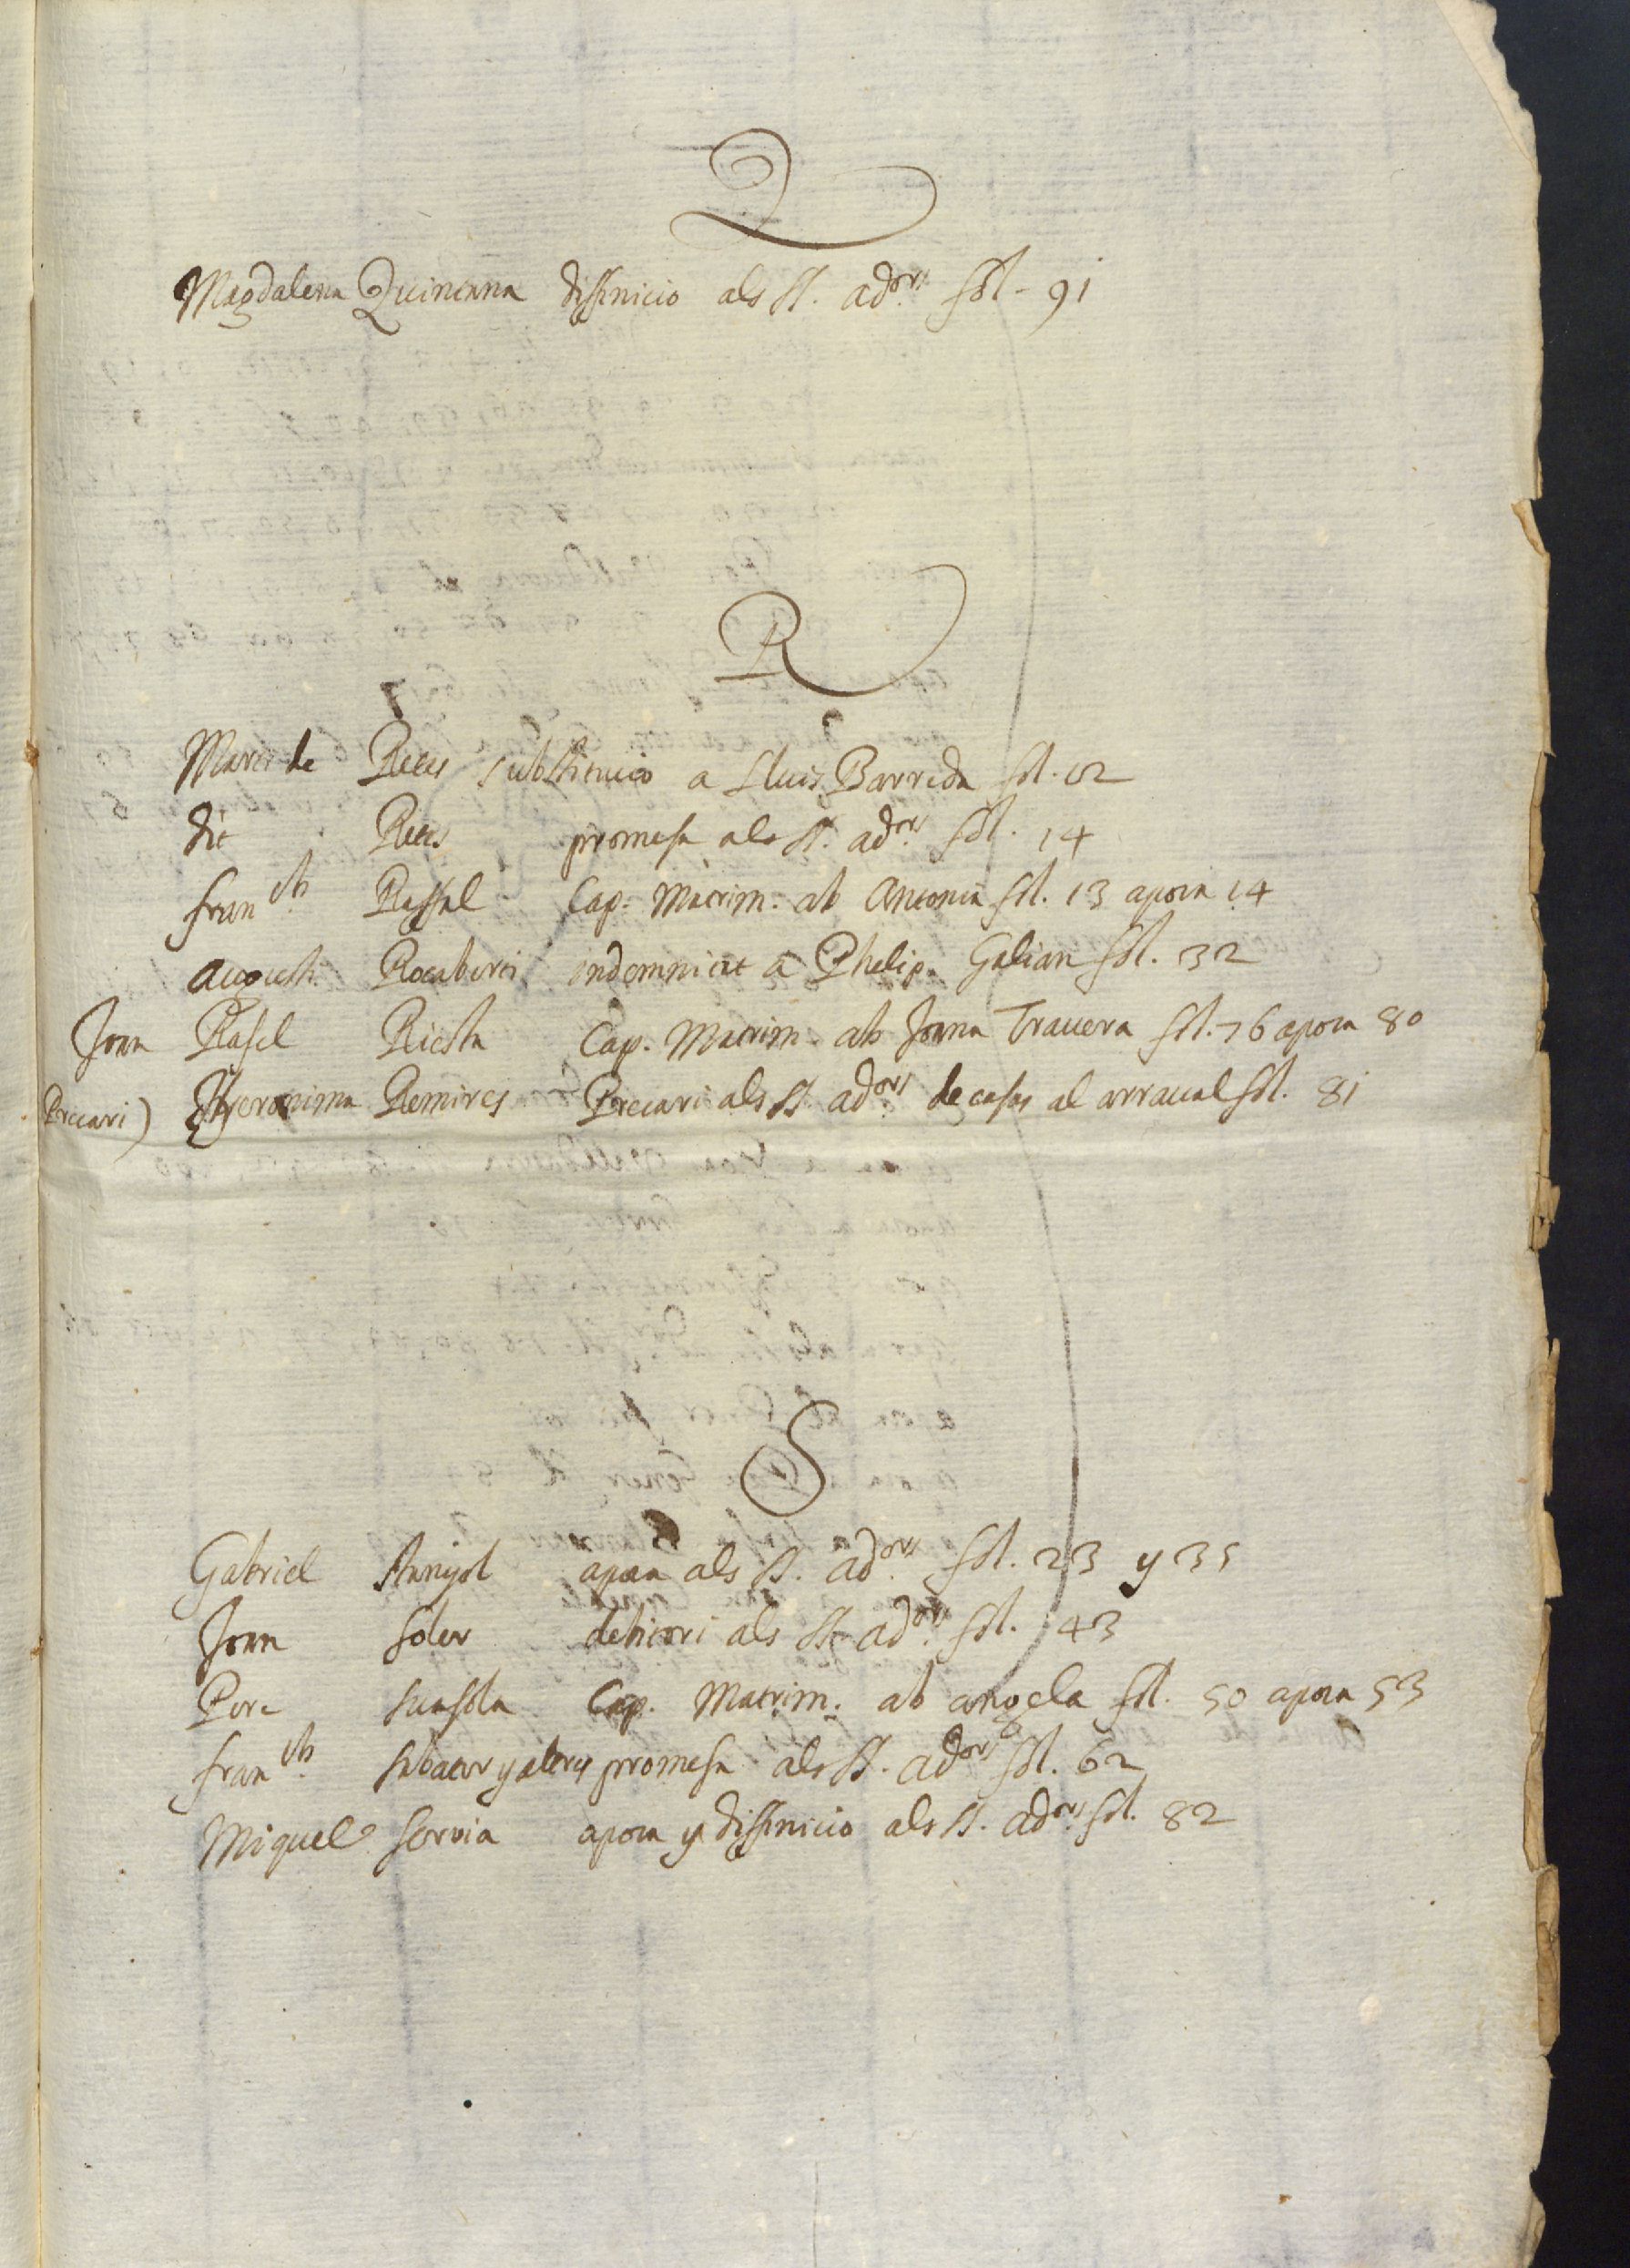 Q
Magdalena Quintana diffinicio als SS. ad.ors fol - 91
R
Marc de Reees substitucio a Lluis Barreda fol. 12
dit Reees promesa als SS. ad.ors fol. 14
Fran.ch Rassal Cap. Matrim. ab Antonia fol. 13 apoca 14
Augusti Rocaberti indemnitat a Phelip Galian fol. 32
Joan Rafel Riesta Cap. Matrim. ab Joana Travera fol. 76 apoca 80
Precari) Hyeronima Remires Precari als SS. ad.ors de casas al arraval fol. 81
S
Gabriel Stanyol apoca als SS. ad.ors fol. 23 y 35
Joan Soler debitori als SS. ad.ors fol. 43
Pere Suasola Cap. Matrim. ab Angela fol. 50 apoca 53
Fran.ch Sabater y altres promesa als SS. ad.ors fol. 62
Miquel Servia apoca y diffinicio als SS. ad.ors fol. 82